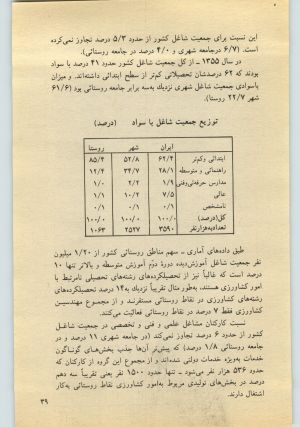 این نسبت برای جمعیت شاغل کشور از حدود ۵/۳ درصد تجاوز نمی‌کرده
است. (۶/۷ درجامعه شهری و ۴/۰ درصد در جامعه روستائی).
در سال ۱۳۵۵ ـ از کل جمعیت شاغل کشور حدود ۴۱ درصد با سواد
بودند که ۶۲ درصدشان تحصیلاتی کم‌تر از سطح ابتدائی داشته‌اند. و میزان
باسوادی جمعیت شاغل شهری نزدیك به‌سه برابر جامعه روستائی بود (۶۱/۶
شهر ۲۲/۷ روستا).
توزیع جمعیت شاغل با سواد (درصد)
ایران شهر روستا
ابتدائی وکم‌تر ۶۲/۴ ۵۲/۸ ۸۵/۴
راهنمائی و متوسطه ۲۸/۱ ۳۴/۷ ۱۲/۴
مدارس حرفه‌ئی‌وفنی ۱/۹ ۲/۲ ۱/۰
عالی ۷/۵ ۱۰/۲ ۱/۱
نامشخص ۰/۱ ۰/۱ ۰/۱
کل(درصد) ۱۰۰/۰ ۱۰۰/۰ ۱۰۰/۰
تعداد(به‌هزارنفر) ۳۵۹۰ ۲۵۲۷ ۱۰۶۳
طبق داده‌های آماری ـ سهم مناطق روستائی کشور از ۱/۲۰ میلیون
نفر جمعیت شاغل آموزش‌دیده دورۀ دوّم آموزش متوسطه و بالاتر تنها ۱۰
درصد است که غالباً نیز از تحصیلکرده‌های رشته‌های تحصیلی نامرتبط با
امور کشاورزی هستند، به‌طور مثال تقریباً نزدیك به‌۱۴ درصد تحصیلکرده‌های
رشته‌های کشاورزی در نقاط روستائی مستقرند و از مجموع مهندسین
کشاورزی فقط ۷ درصد در نقاط روستائی فعالیت می‌کنند.
نسبت کارکنان مشاغل علمی و فنی و تخصصی در جمعیت شاغل
کشور از حدود ۶ درصد تجاوز نمی‌کند (در جامعه شهری ۱۱ درصد و در
جامعه روستائی ۱/۸ درصد) که پیش‌تر آن‌ها جذب بخش‌های گوناگون
خدمات به‌ویژه خدمات دولتی شده‌اند و از مجموع این گروه از کارکنان که
حدود ۵۳۶ هزار نفر می‌شود ـ تنها حدود ۱۵۰۰ نفر یعنی تقریباً سه دهم
درصد در بخش‌های تولیدی مربوط به‌امور کشاورزی نقاط روستائی به‌کار
اشتغال دارند.
۳۹